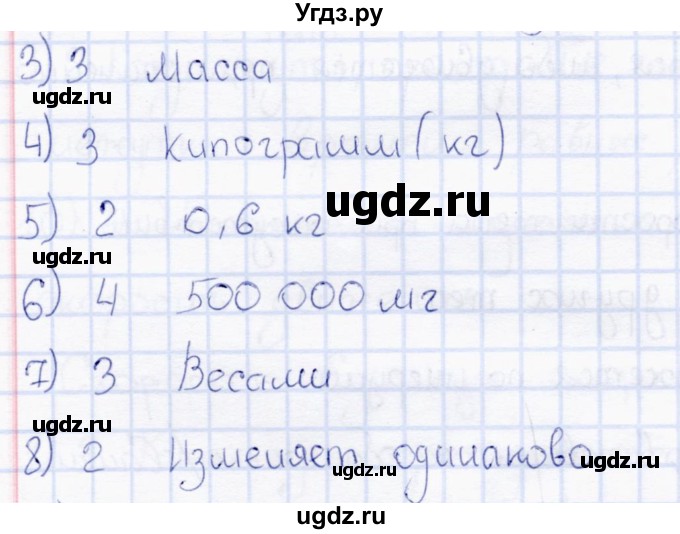 Угдз.ру
3) 3 Масса
ugdz.ru
ugdz.ru
4) 3 Килограмм (кг)
ugdz.ru
5) 2 0,6 кг
6) 4 500 000 мг
7) 3 Весами
ugdz.ru
8) 2 Изменяет одинаково
ugdz.ru
ugdz.ru
ugdz.ru